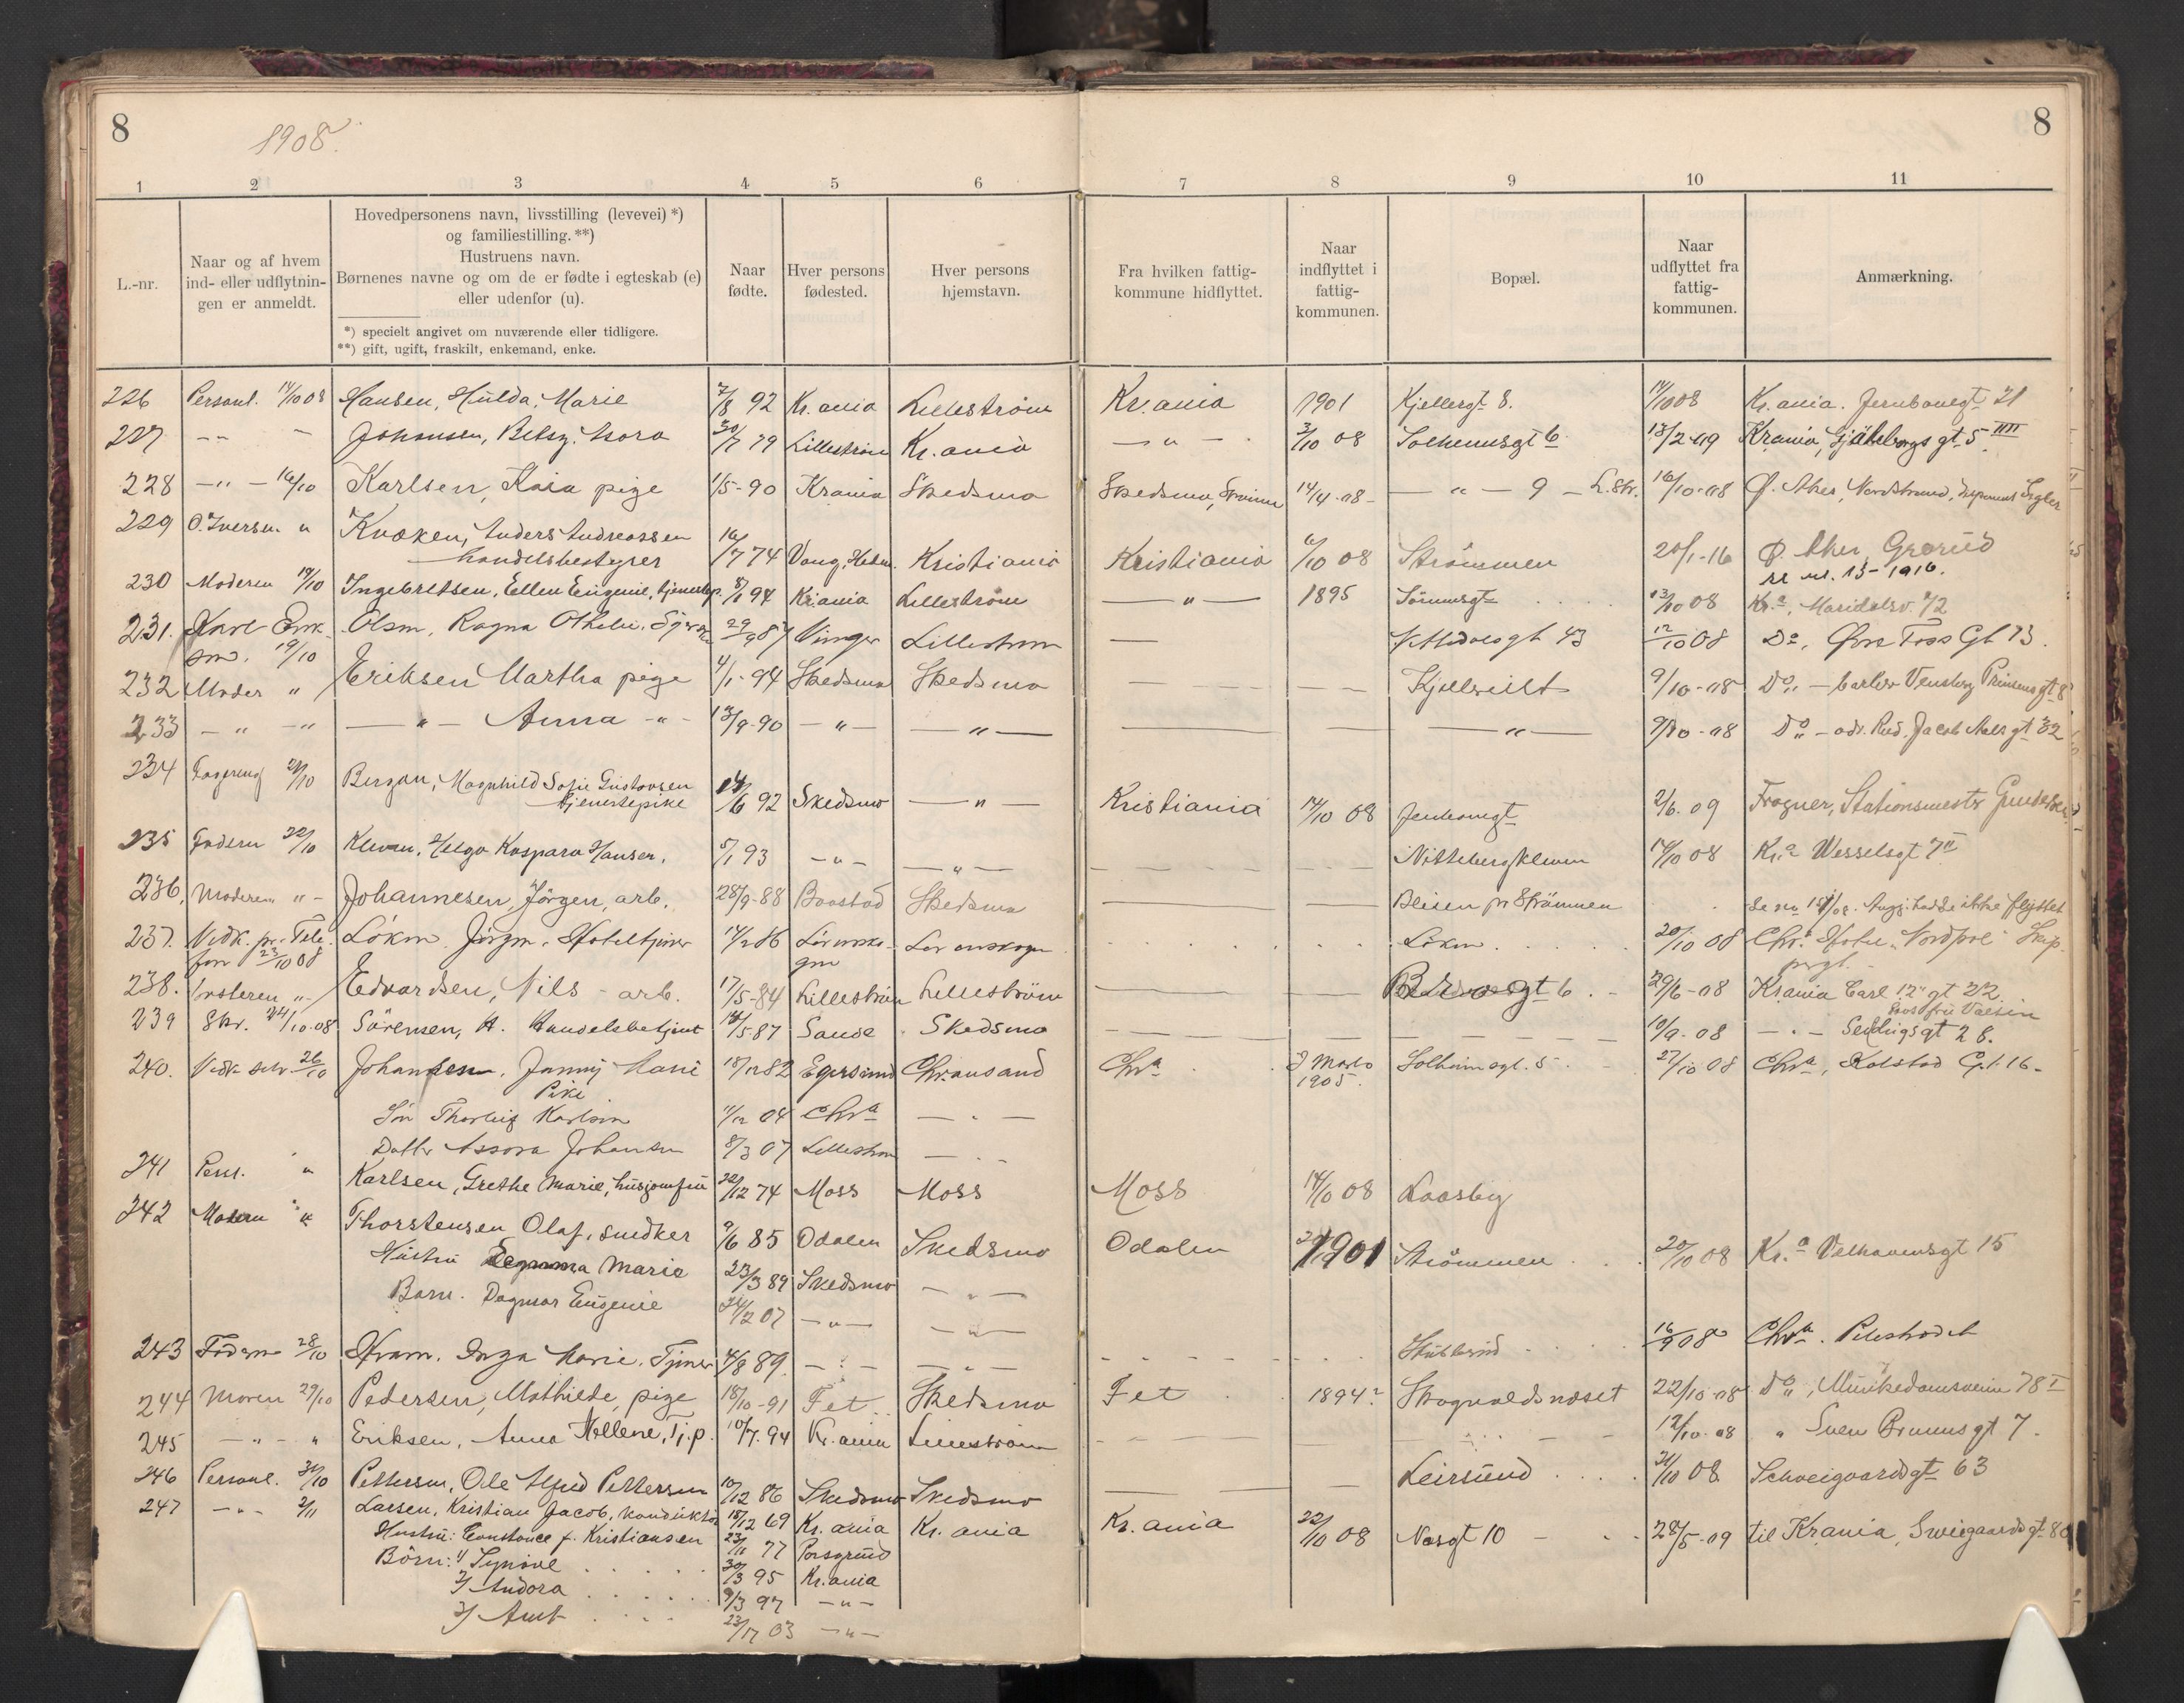 8
1908.
8
1 2 3 4 5 6 7 8 9 10 11
L.-nr.
Naar og af hvem
ind- eller udflytnin-
gen er anmeldt.
Hovedpersonens navn, livsstilling (levevei) *)
og familiestilling. **)
Hustruens navn.
Børnenes navne og om de er fødte i egteskab (e)
eller udenfor (u).
*) specielt angivet om nuværende eller tidligere.
**) gift, ugift, fraskilt, enkemand, enke.
Naar
fødte.
Hver persons
fødested.
Hver persons
hjemstavn.
Fra hvilken fattig-
kommune hidflyttet.
Naar
indflyttet i
fattig-
kommunen.
Bopæl.
Naar
udflyttet fra
fattig-
kommunen.
Anmærkning.
226 Personl. 14/10 08 Hansen, Hulda, Marie 7/8 92 Kr.ania Lilleström Kr.ania 1901 Kjellergt 8. 14/10 08 Kr.ania. Jernbanegt 21
227 -"- - Johansen, Betzy, Isora 30/7 79 Lilleström Kr.ania -"- 3/10 08 Solheimsgt 6 13/2-09 Krania, gt 5 IIII
228 -"- 16/10 Karlsen, Kaia pige 1/5-90 Krania Skedsmo Skedsmo, 14/4-08- -"- 9 - L.str. 16/10-08 Ø. Aker, Nordstrand,
229 O. Iversen " Kvaken, Anders Andreassen
handelsbestyrer 16/7 74 Vang, Hedm. Kristiania Kristiania 6/10 08 Strömmen 20/1-16 Ø. Aker, Grorud
se nr. 13-1916.
230 Moderen 19/10 Ingebretsen, Ellen Eugenie, tjenestep. 8/1 94 Kr.ania Lilleström -"- 1895 13/10 08 Kr.a, Maridalsv. 72
231. Karl Erik-
sen. 19/10 Olsen, Ragna Othelie. 29/9 87 Vinger Lilleström - gt 43 12/10 08 Do, Øvre Foss Gt 13.
232 Moder " Eriksen Martha pige 4/1-94 Skedsmo Skedsmo - - - 9/10-08 Do - Prinsens gt 8
233 -"- -"- -"- Anna -"- 13/9-90 -"- -"- -"- 9/10-08 Do - adr. Rud. Jacob Aals gt 32
234 21/10 Bergan, Magnhild Sofie Gustavsen
tjenestepike 14/6 92 Skedsmo -"- Kristiania 14/10 08 Jernbanegt 2/6. 09 Frogner, Stationsmester
235 Faderen 22/10 Kleven, Helga Kaspara Hansen. 5/1 93 -"- -"- - - Nittebergkleven 14/10 08 Kr.a Wesselsgt 7 II
236, Moderen "- Johannesen, Jörgen, arb. 28/9-88 Skedsmo pr Strömmen se no ikke flyttet
237. Vidk. pr. Tele-
fon 23/10 08 Löken Jörgen. 14/2 86 Lörensko-
gen Lörenskogen Löken 20/10 08 Chr.a Hotel "Nordpol" Skip-
pergt.
238. "- Edvardsen, Nils - arb. 17/5-84 Lilleström Lilleström gt 6 29/6-08 Krania Carl 12" gt 22
239 Skr. 24/10-08 Sörensen, A. Handelsbetjent 14/5 87 Sande Skedsmo 10/9-08 -"- gt 28.
240. Vidk. skr. 26/10 Johansen, Jenny Marie
Pike 18/12 82 Egersund Chr.ansand Chr.a Marts
1905. Solheimsgt. 5 27/10 08 Chr.a, Kolstad Gt. 16-
Sön Thorleif Karlsen 11/12 04 Chr.a -"-
Datter Assora Johansen 8/3 07 Lilleström -"-
241 Pers. " Karlsen, Grethe Marie, husjomfru 22/12 74 Moss Moss Moss 14/10 08 Laasby
242 Moderen " Thorstensen Olaf, snedker 9/6 85 Odalen Skedsmo Odalen 1901 Strömmen 20/10 08 Kr.a Velhavensgt 15
Hustru Marie 23/3 89 Skedsmo -"-
Barn. Dagmar Eugenie 24/2 07 -"- -"-
243 Faderen 28/10 Kram. Inga Marie. Tjener 4/8 89. -"- -"- - - 16/9 08 Chr.a. Pilestrædet
244 Moren 29/10 Pedersen, Mathilde, pige 18/10-91 Fet Skedsmo Fet 1894? 22/10-08 Do, Munkedamsveien 78 I
245 -"- " Eriksen, Anna Hellene, Tj.p. 10/7. 94 Kr.ania Lilleström - - 12/10-08 " Sven Bruuns gt 7.
246 Personl. 31/10 Pettersen, Ole Alfred Pettersen 10/12 86 Skedsmo Skedsmo - Leirsund 31/10 08 Schweigaardsgt 63
247 -"- 2/11 Larsen, Kristian Jacob, konduktör 18/12 69 Kr.ania Kr.ania Kr.ania 22/10 08 Næsgt 10 - 28/5-09 til Krania, Sveigaardsgt 80
Hustru: Constance f. Kristiansen 23/11 77 Porsgrund
Börn: 1/ Synöve 30/3 95 Kr.ania
2/ Andora 9/3 97 -"-
3/ 03 -"-